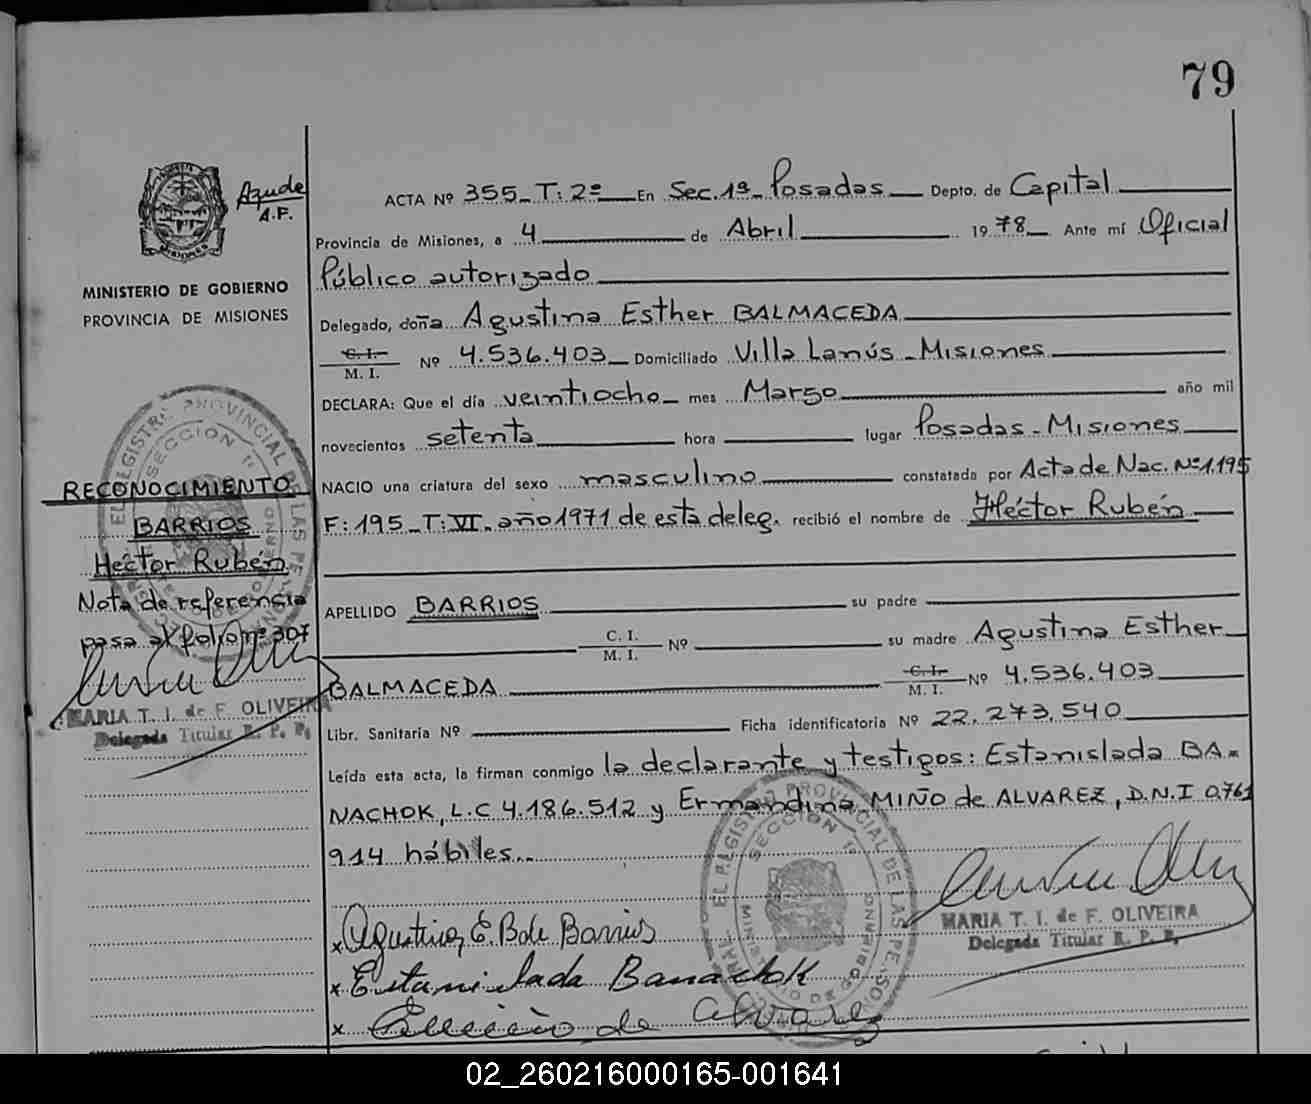 79
Azude
A.F.
MINISTERIO DE GOBIERNO
PROVINCIA DE MISIONES
ACTA Nº 355_ T: 2º En Sec. 1ª_ Posadas Depto. de Capital
Provincia de Misiones, a 4 de Abril 1978 Ante mí Oficial
Público autorizado
Delegado, doña Agustina Esther BALMACEDA
C. I.
M. I. Nº 4.536.403 Domiciliado Villa Lanús - Misiones
DECLARA: Que el día veintiocho mes Marzo año mil
novecientos setenta hora lugar Posadas - Misiones
NACIO una criatura del sexo masculino constatada por Acta de Nac. Nº 1.195
F: 195_ T: VI. año 1971 de esta deleg. recibió el nombre de Héctor Rubén
APELLIDO BARRIOS su padre
C. I.
M. I. Nº su madre Agustina Esther
BALMACEDA C. I.
M. I. Nº 4.536.403
Libr. Sanitaria Nº Ficha identificatoria Nº 22.273.540
Leída esta acta, la firman conmigo la declarante y testigos: Estanislada BA=
NACHOK, L.C 4.186.512 y Ermandina MIÑO de ALVAREZ, D.N.I 0.761
914 hábiles..
RECONOCIMIENTO
BARRIOS
Héctor Rubén
Nota de referencia
pasa al folio nº 307
MARIA T. I. de F. OLIVEIRA
Delegada Titular R. P. P.
REGISTRO PROVINCIAL DE LAS PE
SECCION 1ª
x Agustina E. B de Barrios
x Estanislada Banachok
x de Alvarez
REGISTRO PROVINCIAL DE LAS PE
SECCION 1ª
MARIA T. I. de F. OLIVEIRA
Delegada Titular R. P. P.
02_260216000165-001641